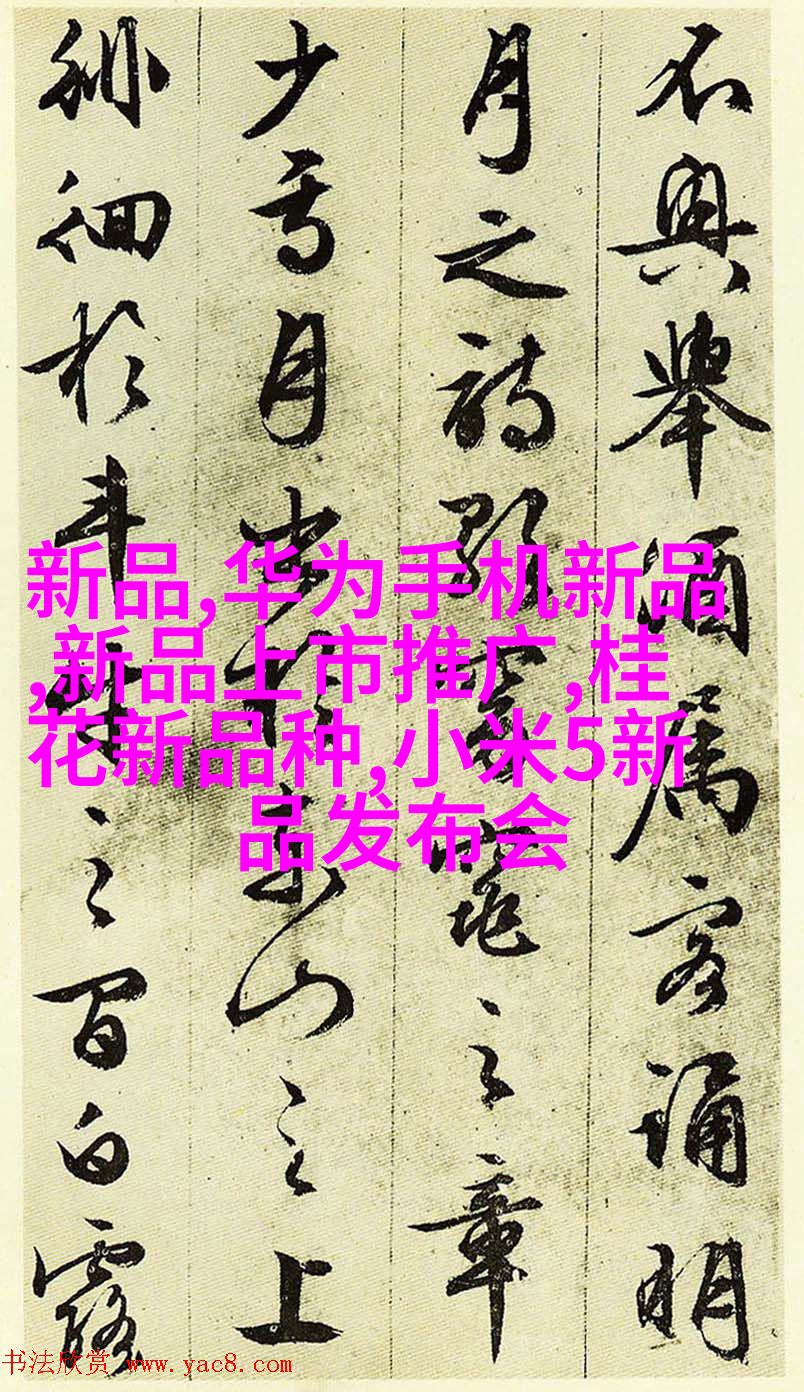 不興舉酒屬客誦明
月之詩歌窈窕之章
少焉月出於東山之上
徘徊於斗牛之間白露
新品,华为手机新品
,新品上市推广,桂
花新品种,小米5新
品发布会
书法欣赏 www.yac8.com